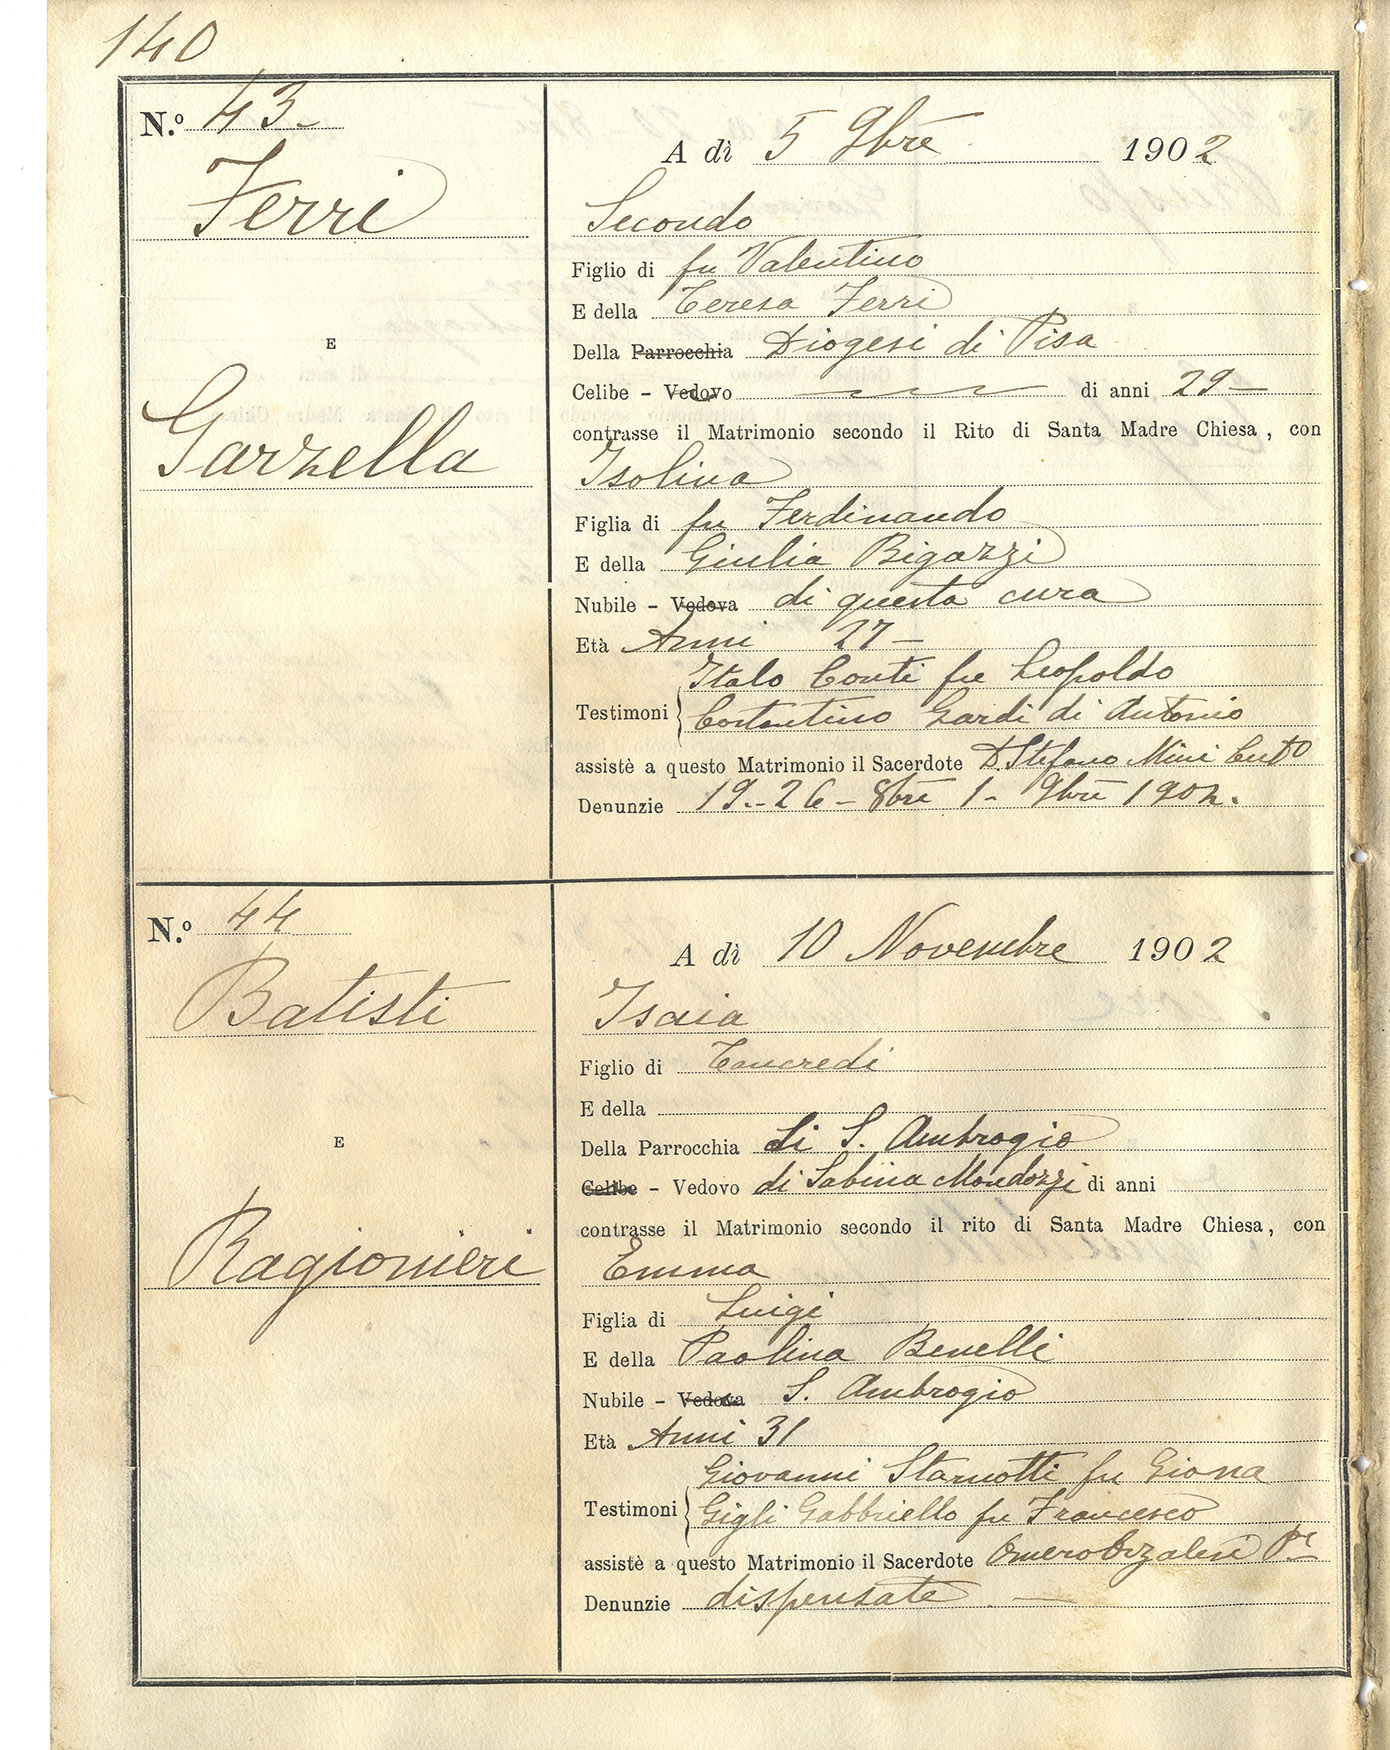 140
N.º 43-
Ferri
E
Garzella
A dì 5 9bre 1902
Secondo
Figlio di fu Valentino
E della Teresa Ferri
Della Parrocchia Diogesi di Pisa
Celibe - Vedovo di anni 29-
contrasse il Matrimonio secondo il Rito di Santa Madre Chiesa, con
Isolina
Figlia di fu Ferdinando
E della Giulia Bigazzi
Nubile - Vedova di questa cura
Età Anni 27-
Italo Conti fu Leopoldo
Testimoni Costantino Gardi di Antonio
assistè a questo Matrimonio il Sacerdote D. Stefano Mini
Denunzie 19.-26- 8bre 1- 9bre 1902.
N.º 44
Batisti
E
Ragionieri
A dì 10 Novembre 1902
Isaia
Figlio di Tancredi
E della
Della Parrocchia di S. Ambrogio
Celibe - Vedovo di Sabina Mondozzi di anni
contrasse il Matrimonio secondo il rito di Santa Madre Chiesa, con
Emma
Figlia di Luigi
E della Paolina Benelli
Nubile - Vedova S. Ambrogio
Età Anni 31
Giovanni Starnotti fu Giona
Testimoni Gigli Gabbriello fu Francesco
assistè a questo Matrimonio il Sacerdote Omero
Denunzie dispensate